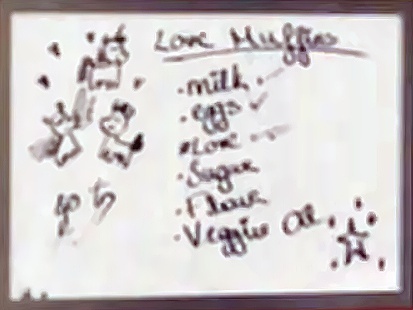 Love Muffins
• milk
• eggs ✓
• Love
• Sugar
• Flour
• Veggie Oil